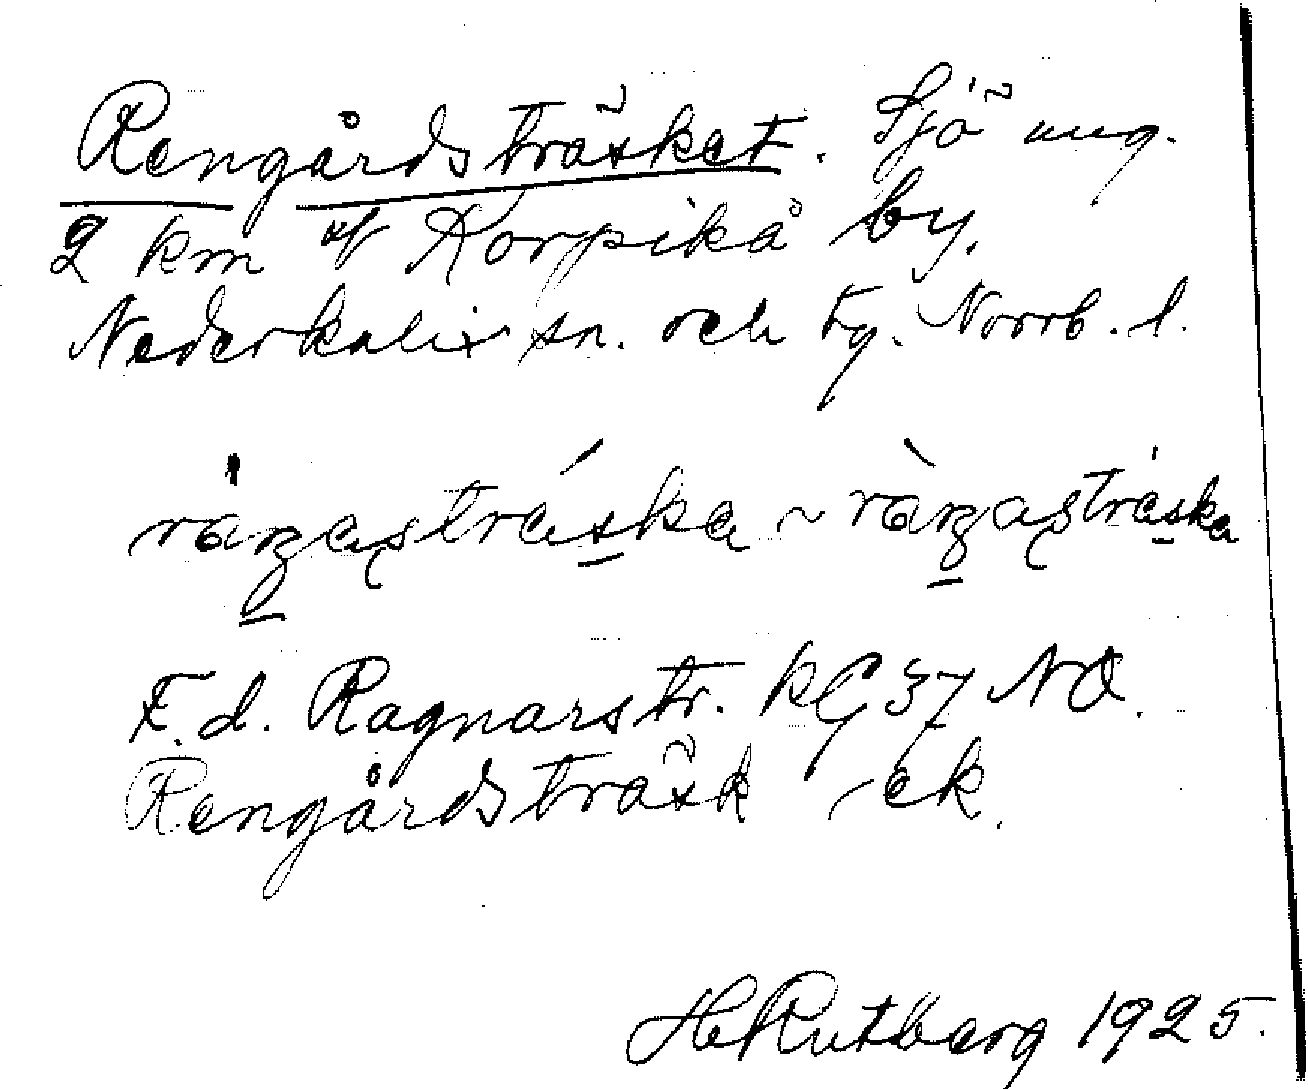 Rengårdsträsket. Sjö ung.
2 km Korpikå by.
Nederkalix sn. och tg. Norrb. l.
F.d. Ragnarstr. kG 37 NO.
Rengårdsträsk ek.
H Rutberg 1925.